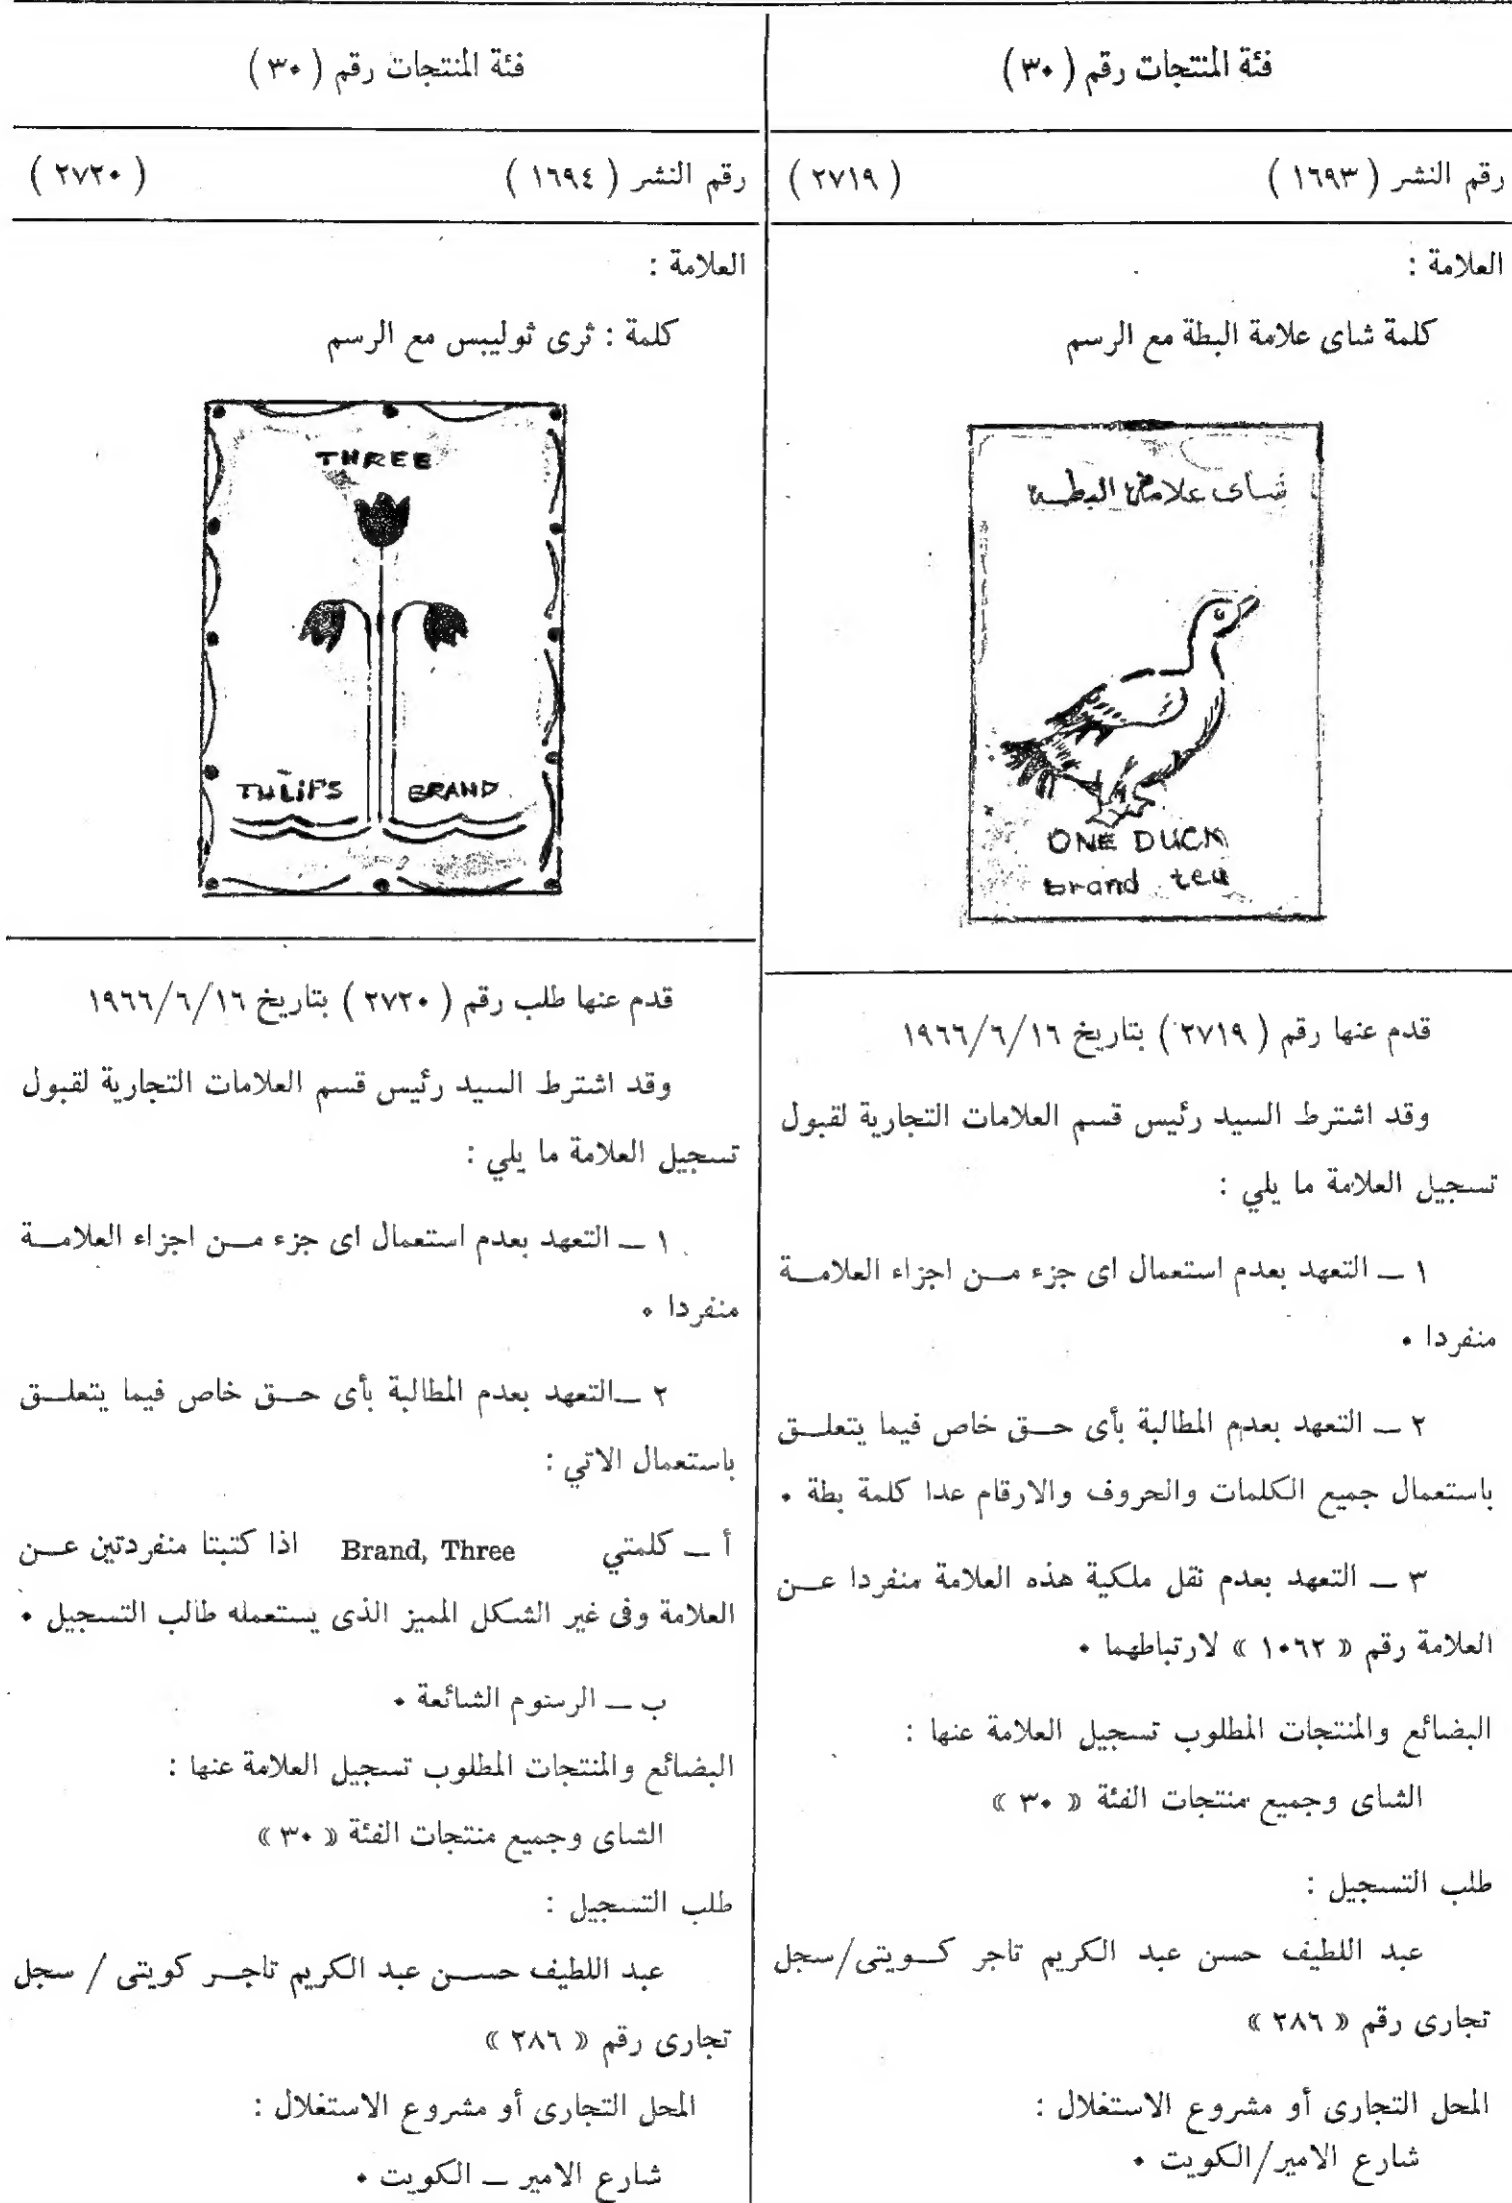 فئة المنتجات رقم ( ٣٠ )
رقم النشر ( ١٦٩٣ ) ( ٢٧١٩ )
العلامة :
كلمة شاى علامة البطة مع الرسم
شاى علامة البطـة
ONE DUCK
brand tea
قدم عنها رقم ( ٢٧١٩ ) بتاريخ ١٩٦٦/٦/١٦
وقد اشترط السيد رئيس قسم العلامات التجارية لقبول
تسجيل العلامة ما يلي :
١ ــ التعهد بعدم استعمال اى جزء مــن اجزاء العلامــة
منفردا .
٢ ــ التعهد بعدم المطالبة بأى حــق خاص فيما يتعلــق
باستعمال جميع الكلمات والحروف والارقام عدا كلمة بطة .
٣ ــ التعهد بعدم نقل ملكية هذه العلامة منفردا عــن
العلامة رقم « ١٠٦٢ » لارتباطهما .
البضائع والمنتجات المطلوب تسجيل العلامة عنها :
الشاى وجميع منتجات الفئة « ٣٠ »
طلب التسجيل :
عبد اللطيف حسن عبد الكريم تاجر كــويتى/سجل
تجارى رقم « ٢٨٦ »
المحل التجارى أو مشروع الاستغلال :
شارع الامير/الكويت .
فئة المنتجات رقم ( ٣٠ )
رقم النشر ( ١٦٩٤ ) ( ٢٧٢٠ )
العلامة :
كلمة : ثرى ثوليبس مع الرسم
THREE
THLiPS BRAND
قدم عنها طلب رقم ( ٢٧٢٠ ) بتاريخ ١٩٦٦/٦/١٦
وقد اشترط السيد رئيس قسم العلامات التجارية لقبول
تسجيل العلامة ما يلي :
١ ــ التعهد بعدم استعمال اى جزء مــن اجزاء العلامــة
منفردا .
٢ ــالتعهد بعدم المطالبة بأى حــق خاص فيما يتعلــق
باستعمال الاتي :
أ ــ كلمتي Brand, Three اذا كتبتا منفردتين عــن
العلامة وفى غير الشكل المميز الذى يستعمله طالب التسجيل .
ب ــ الرسوم الشائعة .
البضائع والمنتجات المطلوب تسجيل العلامة عنها :
الشاى وجميع منتجات الفئة « ٣٠ »
طلب التسجيل :
عبد اللطيف حســن عبد الكريم تاجــر كويتى / سجل
تجارى رقم « ٢٨٦ »
المحل التجارى أو مشروع الاستغلال :
شارع الامير ــ الكويت .